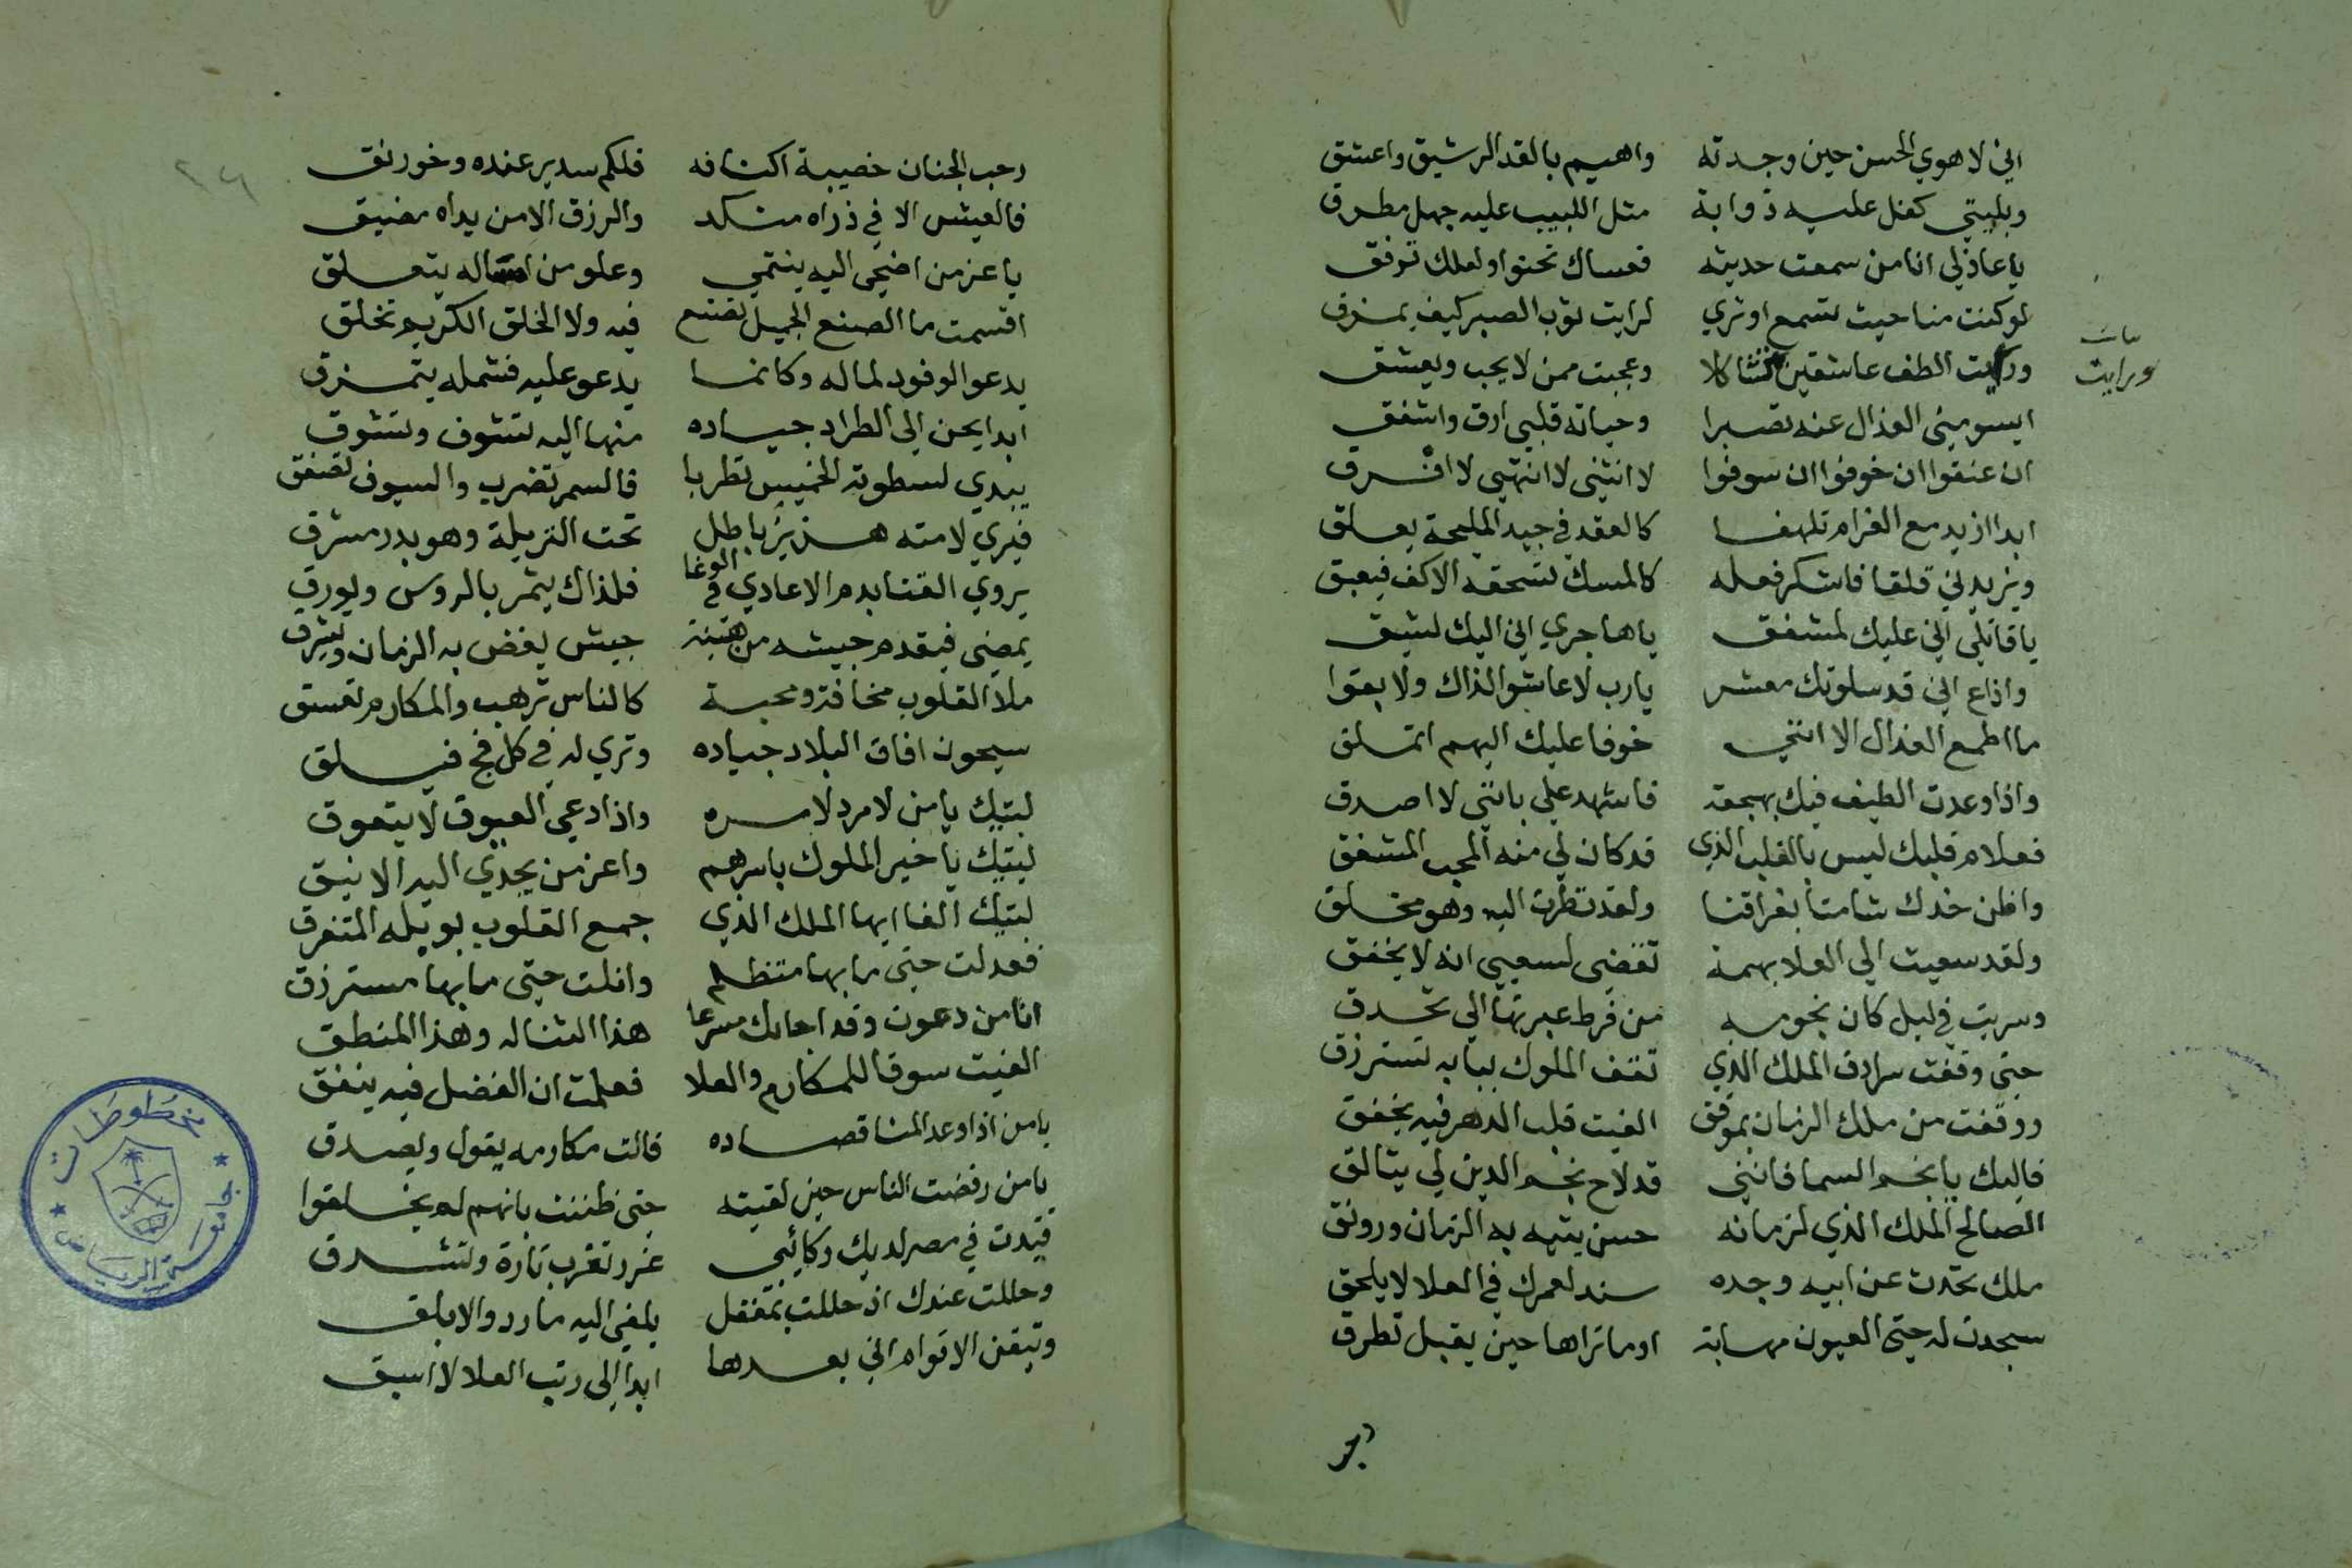 اني لاهوي الحسن حين وجدته واهيم بالقد الرشيق واعشق
وبليتي كفل عليه ذوابة مثل اللبيب عليه جهل مطرق
يا عاذلي انا من سمعت حديثه فعساك تحنوا ولعلك ترفق
لو كنت مناحيث تسمع او تري لرايت ثوب الصبر كيف يمزق
ورايت الطف عاشقين تشاكلا وعجبت ممن لا يحب ويعشق
ورايت
ايسومني العذال عنه تصبرا وحياته قلبي ارق واشفق
ان عنفوا ان خوفوا ان سوفوا لا انثني لا انتهي لا افرق
ابدا ازيد مع الغرام تلهفا كالعقد في جيد المليحة يعلق
ويزيدني قلقا فاشكر فعله كالمسك تسحقه الاكف فيعبق
يا قاتلي اني عليك لمشفق يا هاجري اني اليك لشيق
واذاع اني قد سلوتك معشر يا رب لا عاشوا لذاك ولا بقوا
ما اطمع العذال الا انني خوفا عليك اليهم اتملق
واذا وعدت الطيف فيك بهجعة فاشهد علي بانني لا اصدق
فعلام قلبك ليس بالقلب الذي قد كان لي منه المحب المشفق
واظن خدك شامتا بفراقنا ولقد نظرت اليه وهو مخلق
ولقد سعيت الي العلا بهمة تقضي لسعيي انه لا يخفق
وسريت في ليل كان نجومه من فرط عبرتها الي تحدق
حتى وقفت سرادق الملك الذي تقف الملوك ببابه تسترزق
ووقفت من ملك الزمان بموقف الفيت قلب الدهر فيه يخفق
فاليك يا نجم السما فانني قد لاح نجم الدين لي يتالق
الصالح الملك الذي لزمانه حسن يتيه به الزمان ورونق
ملك تحدث عن ابيه وجده سند لعمرك في العلا لا يلحق
سجدت له حتى العيون مهابة اوما تراها حين يقبل تطرق
رحب الجنان خصيبة اكنافه فلكم سدير عنده وخورنق
فالعيش الا في ذراه منكد والرزق الا من يداه مضيق
يا عز من اضحي اليه ينتمي وعلو من له يتعلق
اقسمت ما الصنع الجميل تصنع فيه ولا الخلق الكريم تخلق
يدعو الوفود لماله وكانما يدعو عليه فشمله يتمزق
ابدا يحن الى الطراد جياده منها اليه تشوف وتشوق
يبدي لسطوته الخميس تطربا فالسمر تضرب والسيوف تصفق
فيري لامته هزبر باطل تحت التريلة وهو بدر مشرق
يروي القنا بدم الاعادي في الوغا فلذاك يثمر بالروس ويورق
يمضي فيقدم جيشه من هيبة جيش يغض به الزمان ويشرق
ملا القلوب مخافة ومحبة كالناس ترهب والمكارم تعشق
سيحون افاق البلاد جياده وتري له في كل فج فيلق
لبيك يا من لا مرد لامره واذا دعي العيوق لا يتعوق
لبيك يا خير الملوك باسرهم واعز من يجدي اليه الا نيق
لبيك الفا ايها الملك الذي جمع القلوب بويله المتفرق
فعدلت حتى ما بها متظلم وانلت حتى ما بها مسترزق
انا من دعوت وقد اجابك مسرعا هذا الثنا له وهذا المنطق
الفيت سوقا للمكارم والعلا فعلمت ان الفضل فيه ينفق
يا من اذا وعد المنا قصاده قالت مكارمه يقول ويصدق
يا من رفضت الناس حين لقيته حتى ظننت بانهم لم يخلقوا
قيدت في مصر لديك ركائبي غرر تغرب تارة وتشرق
وحللت عندك اذ حللت بمعقل يلفي اليه مارد والابلق
وتيقن الاقوام اني بعدها ابدا الي رتب العلا لا اسبق
مخطوطات
جامعة الرياض